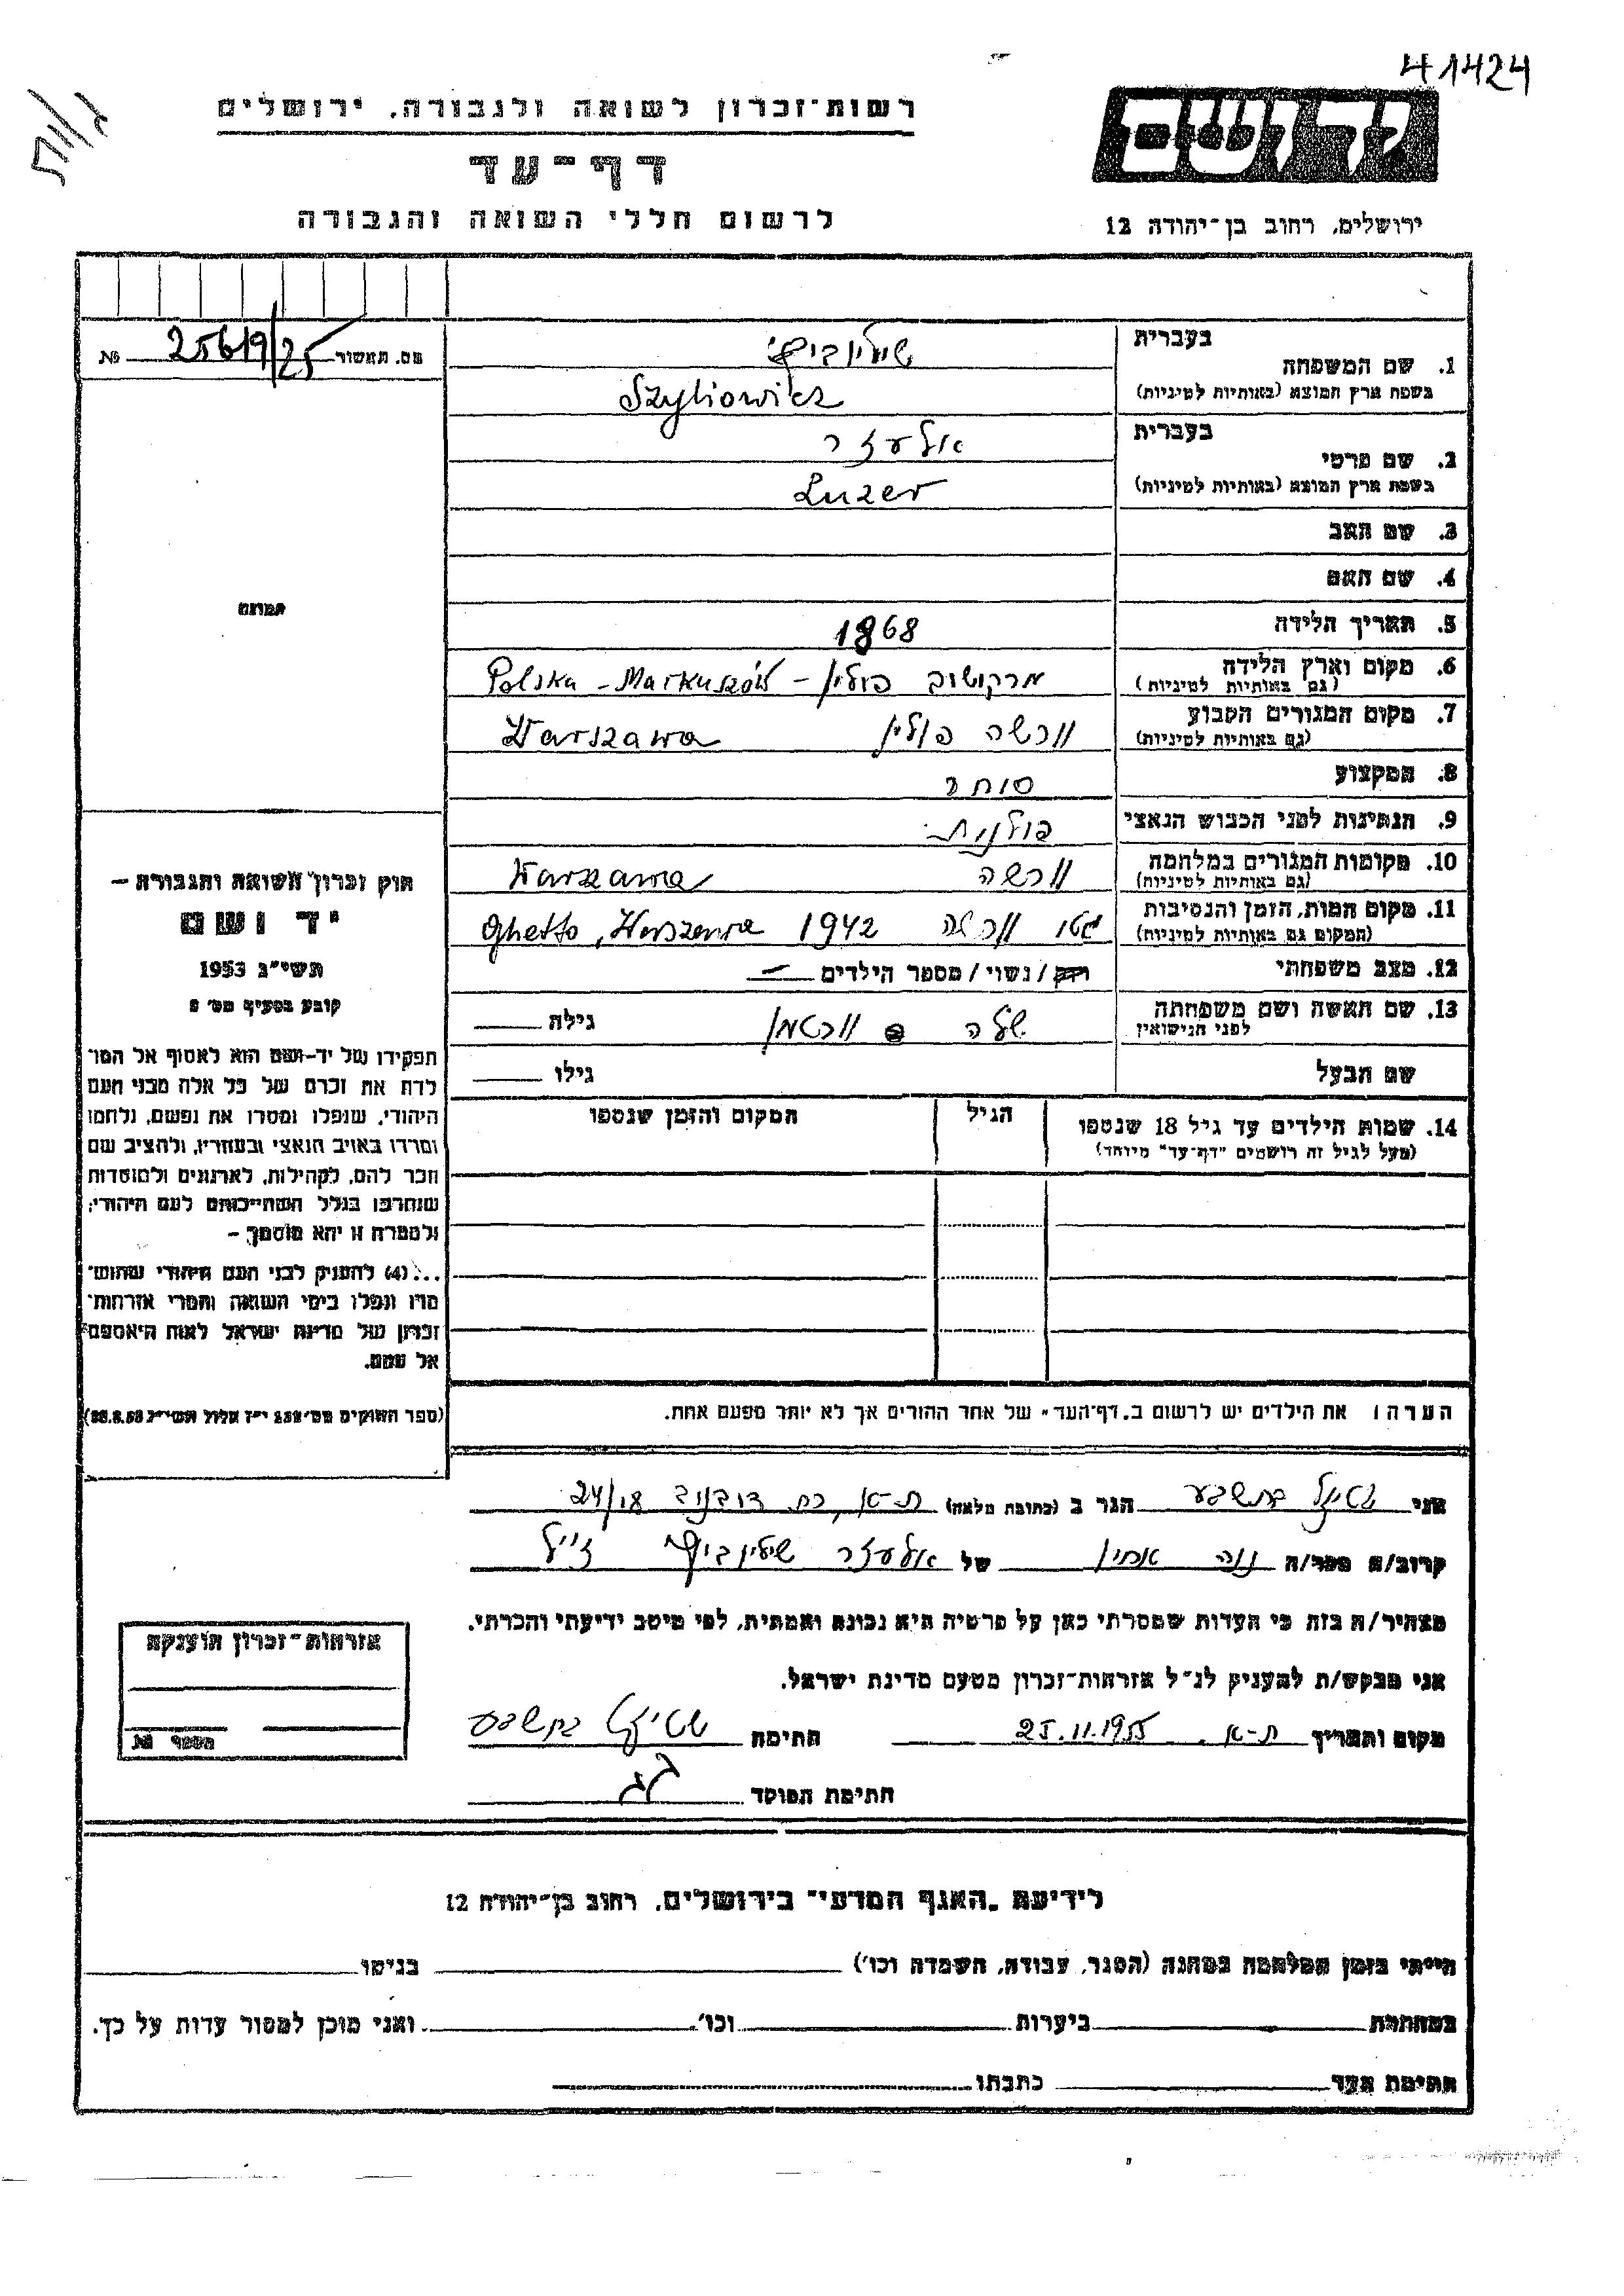 41424
רשות־זכרון לשואה ולגבורה, ירושלים
דף־עד
לרשום חללי השואה והגבורה
יד ושם
ירושלים, רחוב בן־יהודה 12
מס. תאשור 25619/25 №
תמונה
בעברית
1. שם המשפחה שיליוביץ
בשפת ארץ המוצא (באותיות לטיניות) Szyliowicz
בעברית
2. שם פרטי אלעזר
בשפת ארץ המוצא (באותיות לטיניות) Luzer
3. שם האב
4. שם האם
5. תאריך הלידה 1868
6. מקום וארץ הלידה
(גם באותיות לטיניות) מרקושוב פולין – Polska – Markuszów
7. מקום המגורים הקבוע
(גם באותיות לטיניות) וורשה פולין Warszawa
8. המקצוע סוחר
9. הנתינות לפני הכבוש הנאצי פולנית
10. מקומות המגורים במלחמה
(גם באותיות לטיניות) וורשה Warszawa
11. מקום המות, הזמן והנסיבות
(המקום גם באותיות לטיניות) גטו וורשה 1942 Ghetto, Warszawa
12. מצב משפחתי רווק / נשוי / מספר הילדים —
13. שם האשה ושם משפחתה
לפני הנישואין שלה וורטמן גילה
שם הבעל גילו
14. שמות הילדים עד גיל 18 שנספו הגיל המקום והזמן שנספו
(מעל לגיל זה רושמים "דף־עד" מיוחד)
הערה: את הילדים יש לרשום ב„דף־העד" של אחד ההורים אך לא יותר מפעם אחת.
חוק זכרון השואה והגבורה –
יד ושם
תשי"ג 1953
קובע בסעיף מס' 2
תפקידו של יד־ושם הוא לאסוף אל המו־
לדת את זכרם של כל אלה מבני העם
היהודי, שנפלו ומסרו את נפשם, נלחמו
ומרדו באויב הנאצי ובעוזריו, ולהציב שם
וזכר להם, לקהילות, לארגונים ולמוסדות
שנחרבו בגלל השתייכותם לעם היהודי;
ולמטרה זו יהא מוסמך –
...(4) להעניק לבני העם היהודי שהוש־
מדו ונפלו בימי השואה והמרי אזרחות־
זכרון של מדינת ישראל לאות היאספם
אל עמם.
(ספר החוקים מס' 132 י"ז אלול תשי"ג 28.8.53)
אני בתשבע הגר ב (כתובת מלאה) ת-א, 24/18
קרוב/ה מפר/ה של אלעזר שיליוביץ ז"ל
מצהיר/ה בזה כי העדות שמסרתי כאן על פרטיה היא נכונה ואמתית, לפי מיטב ידיעתי והכרתי.
אני מבקש/ת להעניק לנ"ל אזרחות־זכרון מטעם מדינת ישראל.
מקום ותאריך ת-א. 25.11.1955 חתימה בתשבע
חתימת המוסד
אזרחות־זכרון הוענקה
מספר №
לידיעת „האגף המדעי" בירושלים, רחוב בן־יהודה 12
הייתי בזמן המלחמה במחנה (הסגר, עבודה, השמדה וכו') בגיטו
במחתרת ביערות וכו' ואני מוכן למסור עדות על כך.
חתימת העד כתבתו